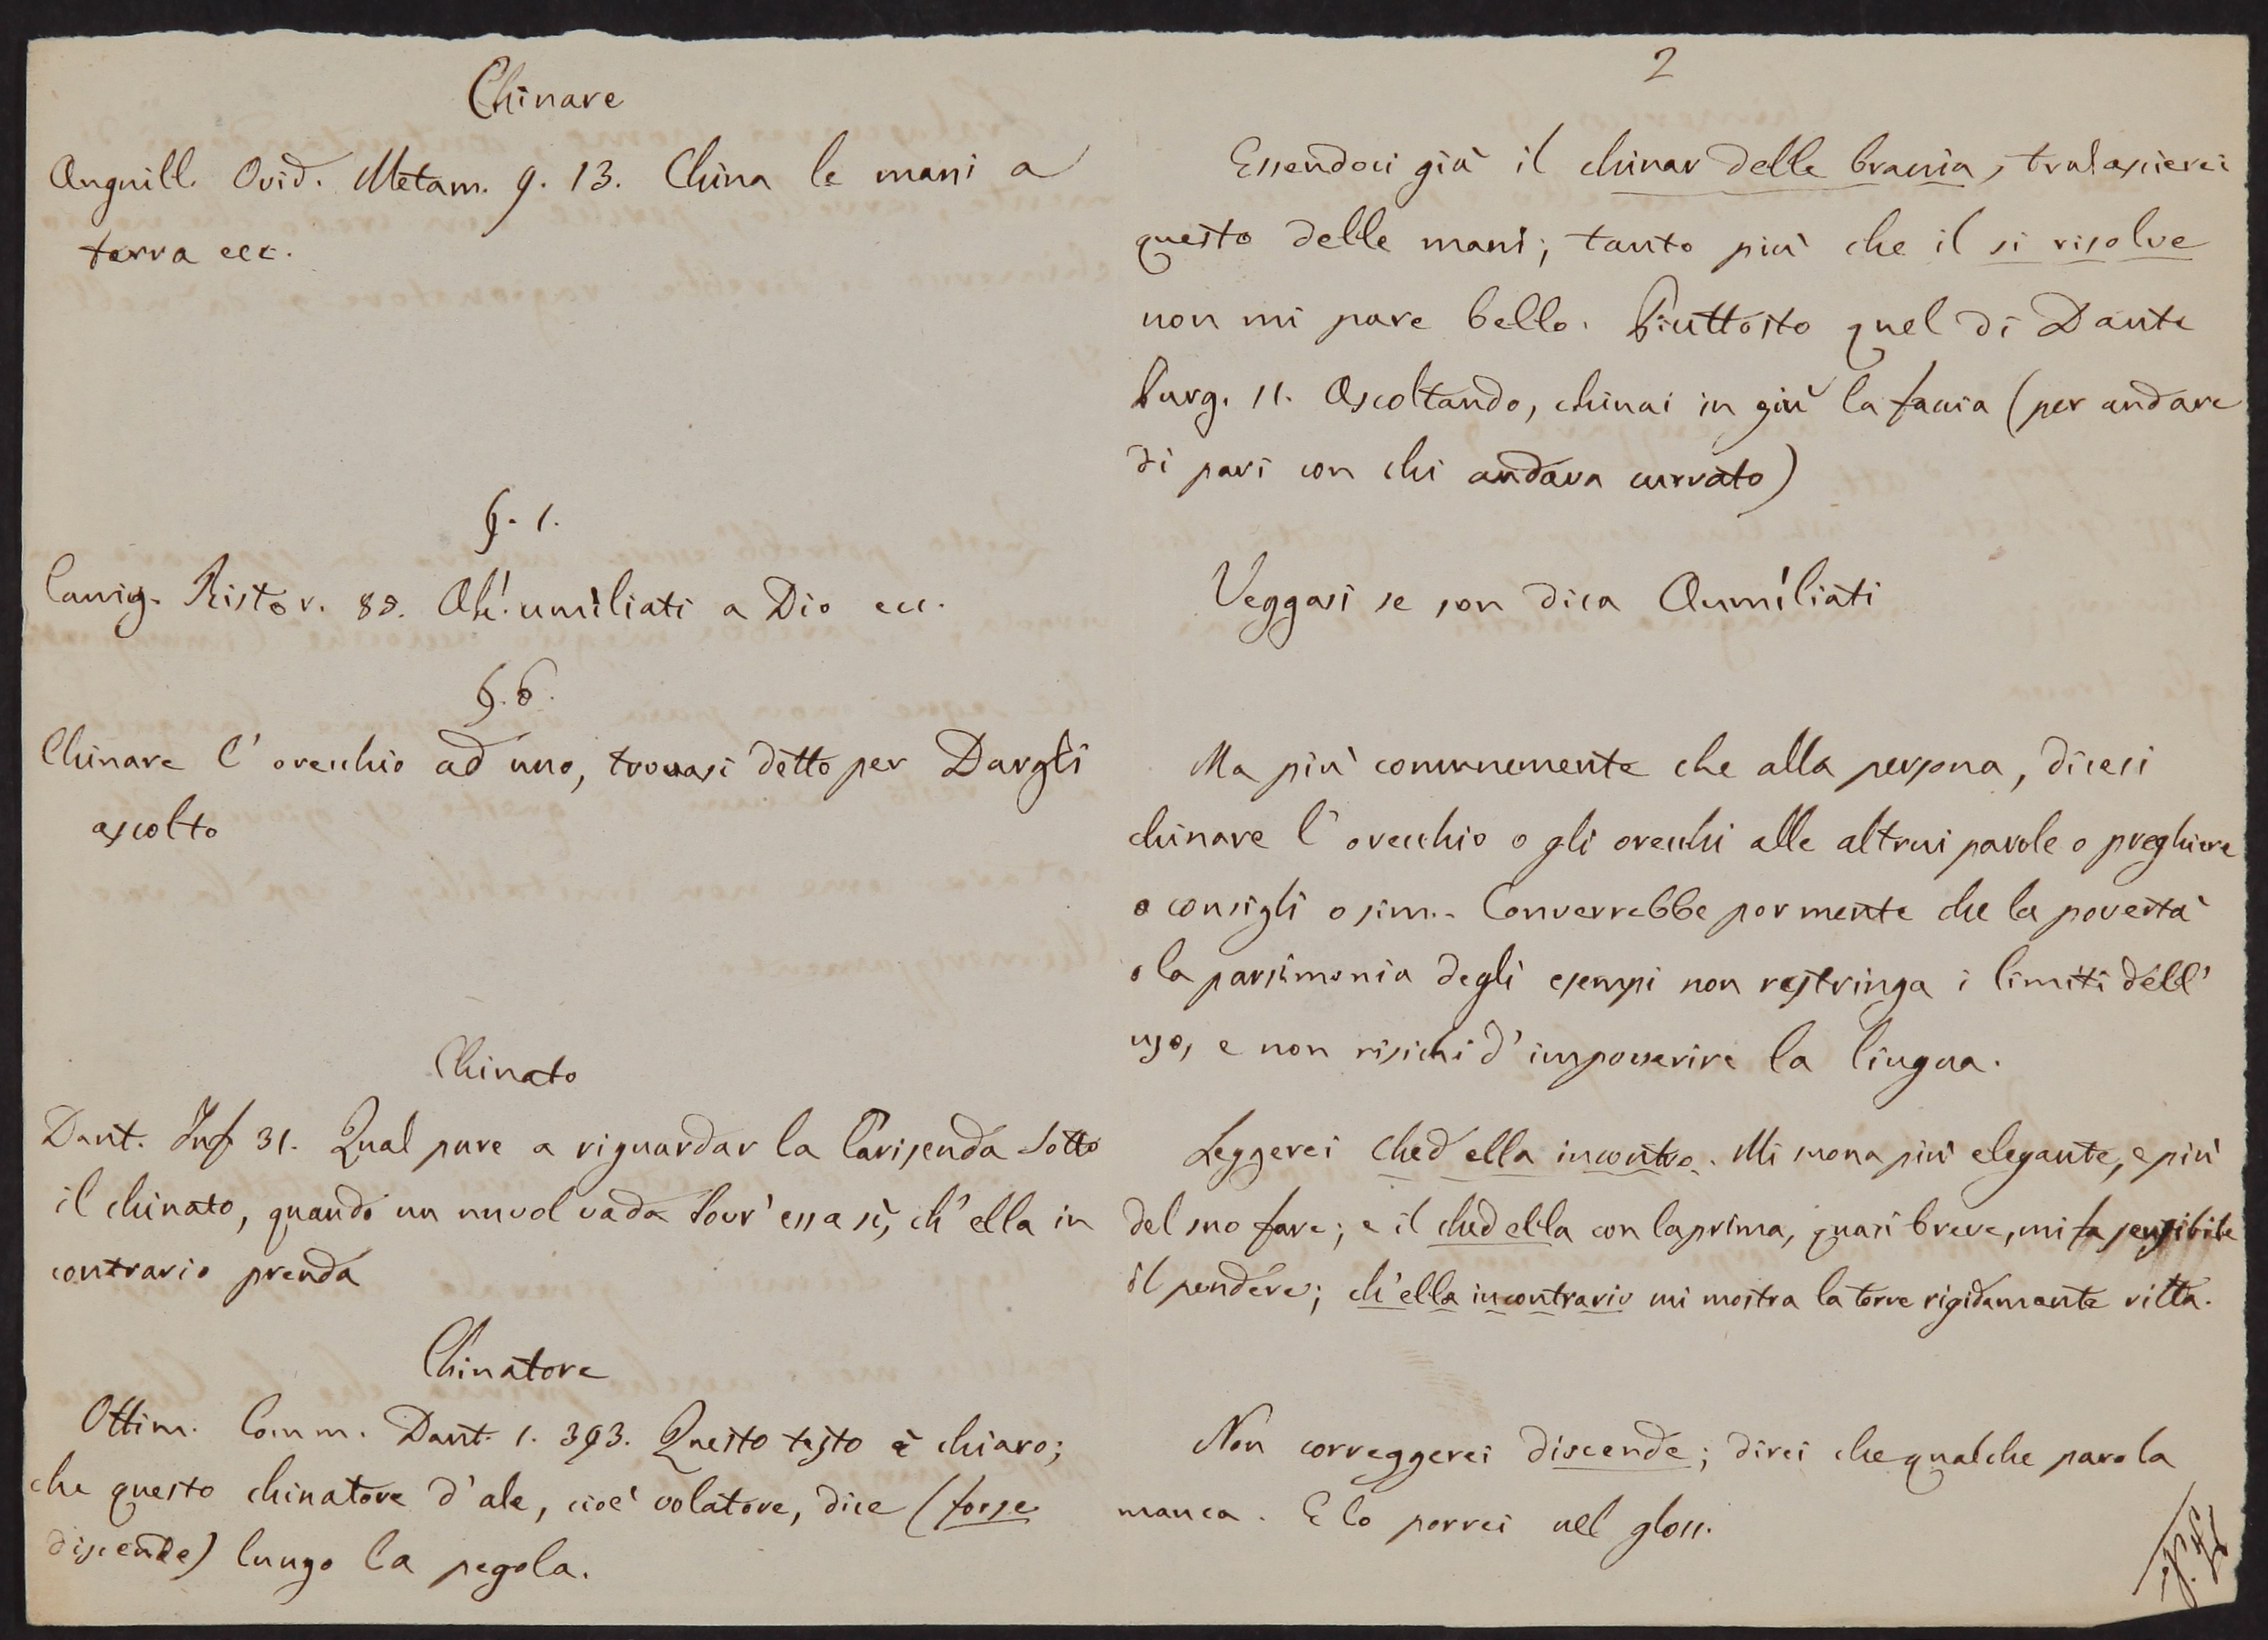 2
Chinare
Anguill. Ovid. Metam. 9. 13. China le mani a
terra ecc.
Essendoci già il chinar delle braccia, tralascierei
questo delle mani; tanto più che il si risolve
non mi pare bello. Piuttosto quel di Dante
Purg. 11. Ascoltando, chinai in giù la faccia (per andare
di pari con chi andava curvato)
§. 1.
Cavig. Ristor. 88. Oh! umíliati a Dio ecc.
Veggasi se non dica Aumíliati
§. 6.
Chinare l' orecchio ad uno, trovasi detto per Dargli
ascolto
Ma più comunemente che alla persona, dicesi
chinare l' orecchio o gli orecchi alle altrui parole o preghiere
o consigli o sim.. Converrebbe por mente che la povertà
o la parsimonia degli esempi non restringa i limiti dell'
uso, e non risichi d' impoverire la lingua.
Chinato
Dant. Inf 31. Qual pare a riguardar la Carisenda Sotto
il chinato, quando un nuvol vada Sovr' essa sì, ch' ella in
contrario prenda
Leggerei ched ella incontro. Mi suona più elegante, e più
del suo fare; e il ched ella con la prima, quasi breve, mi fa sensibile
il pendere; ch' ella incontrario mi mostra la torre rigidamente ritta.
Chinatore
Ottim. Comm. Dant. 1. 393. Questo testo è chiaro;
che questo chinatore d' ale, cioè volatore, dice (forse
discende) lungo la pegola.
Non correggerei discende; direi che qualche parola
manca. E lo porrei nel gloss.